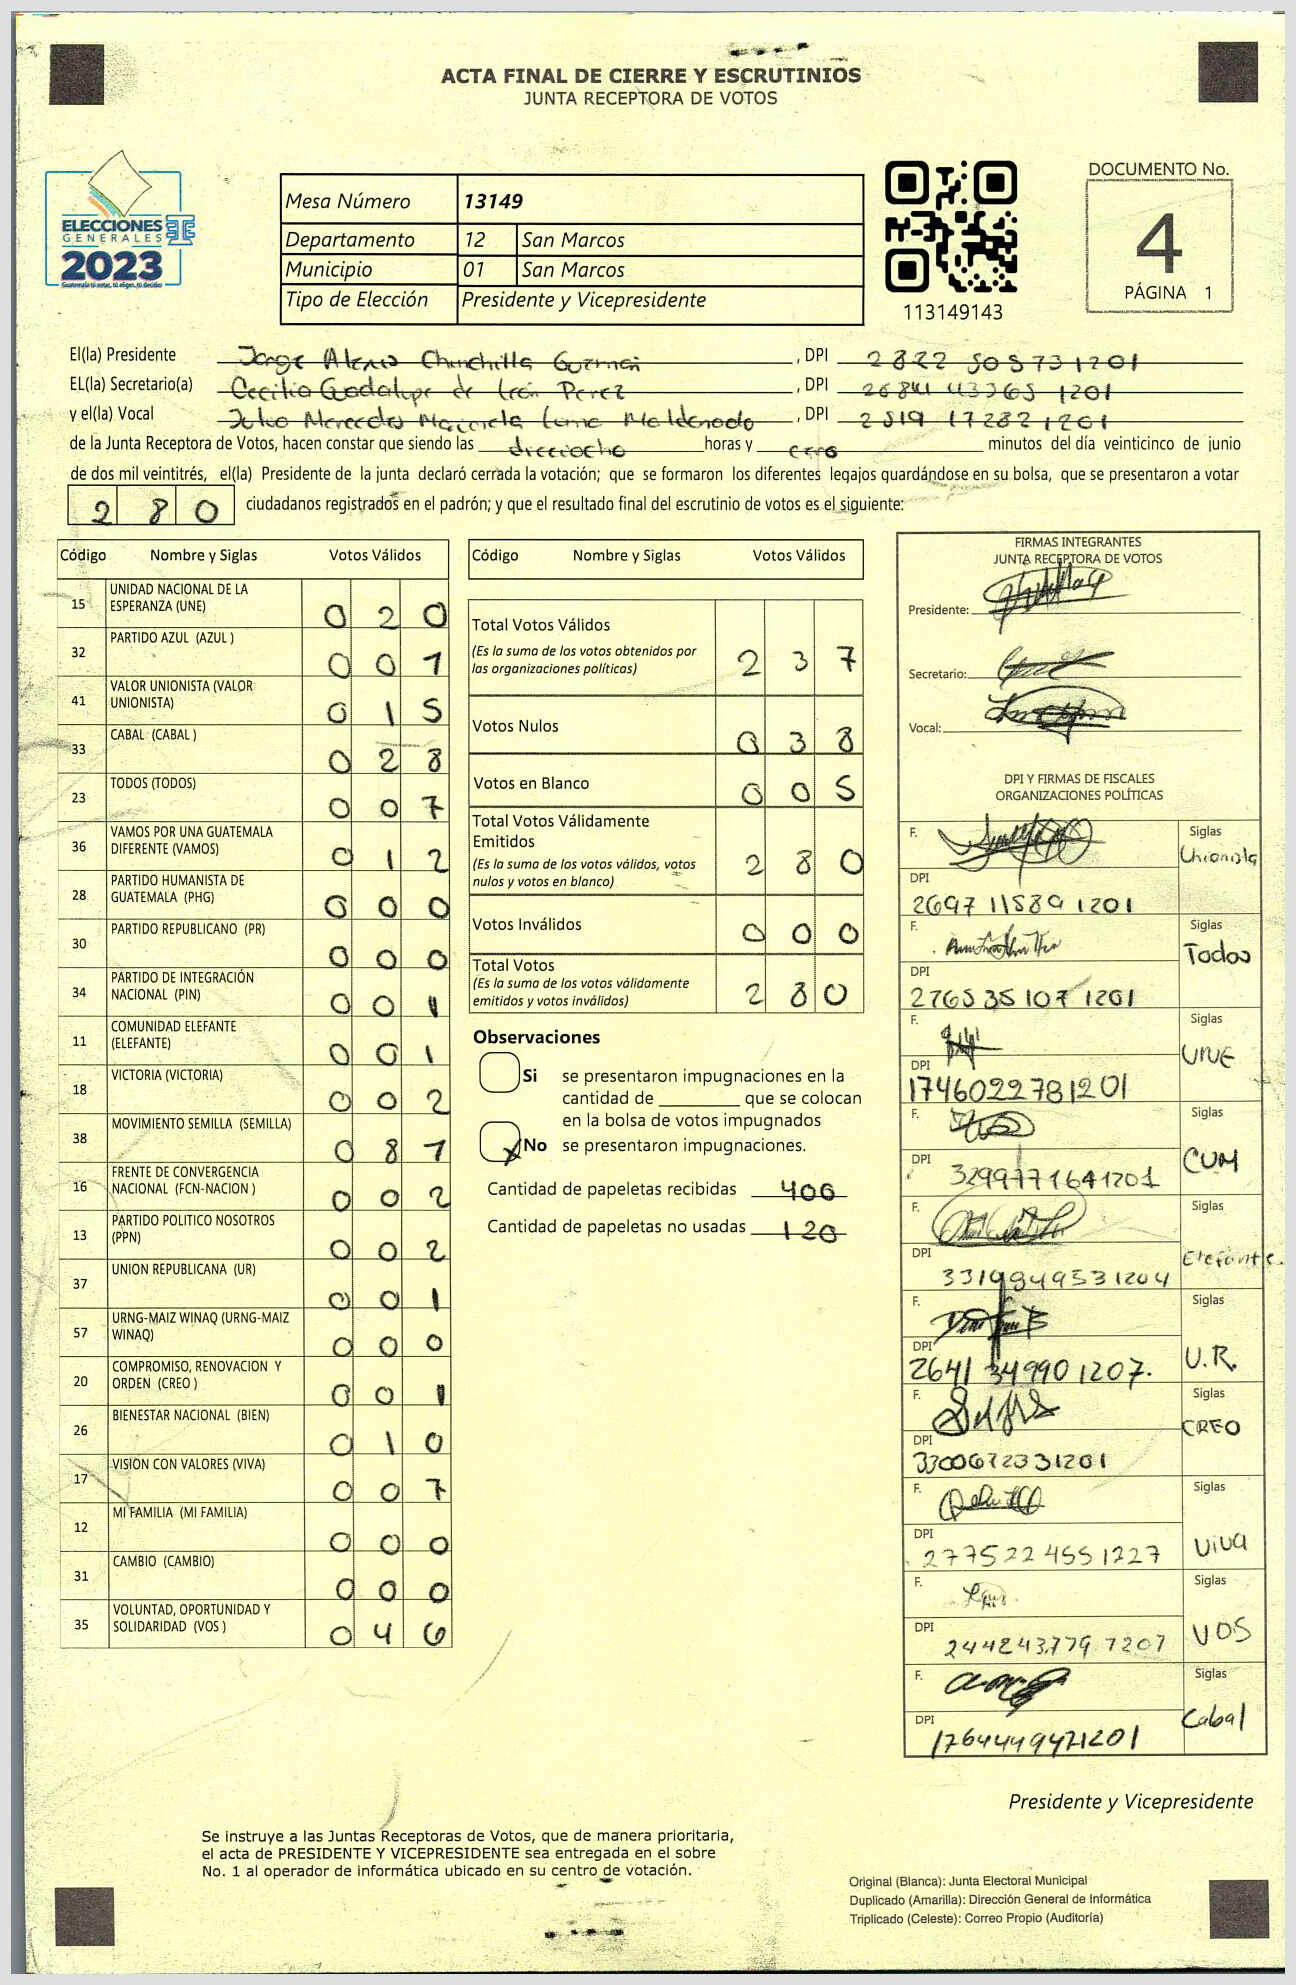 ACTA FINAL DE CIERRE Y ESCRUTINIOS
JUNTA RECEPTORA DE VOTOS
ELECCIONES
GENERALES
2023
Guatemala tú votas, tú eliges, tú decides
Mesa Número 13149
Departamento 12 San Marcos
Municipio 01 San Marcos
Tipo de Elección Presidente y Vicepresidente
113149143
DOCUMENTO No.
4
PÁGINA 1
El(la) Presidente Jorge Alexis Chinchilla Guzmán , DPI 2822 50573 1201
EL(la) Secretario(a) Cecilia Guadalupe de León Perez , DPI 1201
y el(la) Vocal Julio Mercedes Luna Maldonado , DPI 2519 17282 1201
de la Junta Receptora de Votos, hacen constar que siendo las dieciocho horas y cero minutos del día veinticinco de junio
de dos mil veintitrés, el(la) Presidente de la junta declaró cerrada la votación; que se formaron los diferentes legajos guardándose en su bolsa, que se presentaron a votar
280 ciudadanos registrados en el padrón; y que el resultado final del escrutinio de votos es el siguiente:
Código Nombre y Siglas Votos Válidos
15 UNIDAD NACIONAL DE LA ESPERANZA (UNE) 0 2 0
32 PARTIDO AZUL (AZUL ) 0 0 1
41 VALOR UNIONISTA (VALOR UNIONISTA) 0 1 5
33 CABAL (CABAL ) 0 2 8
23 TODOS (TODOS) 0 0 7
36 VAMOS POR UNA GUATEMALA DIFERENTE (VAMOS) 0 1 2
28 PARTIDO HUMANISTA DE GUATEMALA (PHG) 0 0 0
30 PARTIDO REPUBLICANO (PR) 0 0 0
34 PARTIDO DE INTEGRACIÓN NACIONAL (PIN) 0 0 1
11 COMUNIDAD ELEFANTE (ELEFANTE) 0 0 1
18 VICTORIA (VICTORIA) 0 0 2
38 MOVIMIENTO SEMILLA (SEMILLA) 0 8 1
16 FRENTE DE CONVERGENCIA NACIONAL (FCN-NACION ) 0 0 2
13 PARTIDO POLITICO NOSOTROS (PPN) 0 0 2
37 UNION REPUBLICANA (UR) 0 0 1
57 URNG-MAIZ WINAQ (URNG-MAIZ WINAQ) 0 0 0
20 COMPROMISO, RENOVACION Y ORDEN (CREO ) 0 0 1
26 BIENESTAR NACIONAL (BIEN) 0 1 0
17 VISION CON VALORES (VIVA) 0 0 7
12 MI FAMILIA (MI FAMILIA) 0 0 0
31 CAMBIO (CAMBIO) 0 0 0
35 VOLUNTAD, OPORTUNIDAD Y SOLIDARIDAD (VOS ) 0 4 6
Código Nombre y Siglas Votos Válidos
Total Votos Válidos 2 3 7
(Es la suma de los votos obtenidos por
las organizaciones políticas)
Votos Nulos 0 3 8
Votos en Blanco 0 0 5
Total Votos Válidamente
Emitidos 2 8 0
(Es la suma de los votos válidos, votos
nulos y votos en blanco)
Votos Inválidos 0 0 0
Total Votos 2 8 0
(Es la suma de los votos válidamente
emitidos y votos inválidos)
Observaciones
Si se presentaron impugnaciones en la
cantidad de ________ que se colocan
en la bolsa de votos impugnados
X No se presentaron impugnaciones.
Cantidad de papeletas recibidas 400
Cantidad de papeletas no usadas 120
FIRMAS INTEGRANTES
JUNTA RECEPTORA DE VOTOS
Presidente:
Secretario:
Vocal:
DPI Y FIRMAS DE FISCALES
ORGANIZACIONES POLÍTICAS
F. Siglas Unionista
DPI 2697 11589 1201
F. Siglas Todos
DPI 2765 35107 1201
F. Siglas UNE
DPI 1746022781201
F. Siglas CUM
DPI 3299771641201
F. Siglas Elefante.
DPI 3319849531204
F. Siglas U.R.
DPI 2641 34990 1207.
F. Siglas CREO
DPI 3300672331201
F. Siglas Viva
DPI 2775224551227
F. Siglas VOS
DPI 244243779 1207
F. Siglas Cabal
DPI 1764449471201
Presidente y Vicepresidente
Se instruye a las Juntas Receptoras de Votos, que de manera prioritaria,
el acta de PRESIDENTE Y VICEPRESIDENTE sea entregada en el sobre
No. 1 al operador de informática ubicado en su centro de votación.
Original (Blanca): Junta Electoral Municipal
Duplicado (Amarilla): Dirección General de Informática
Triplicado (Celeste): Correo Propio (Auditoría)